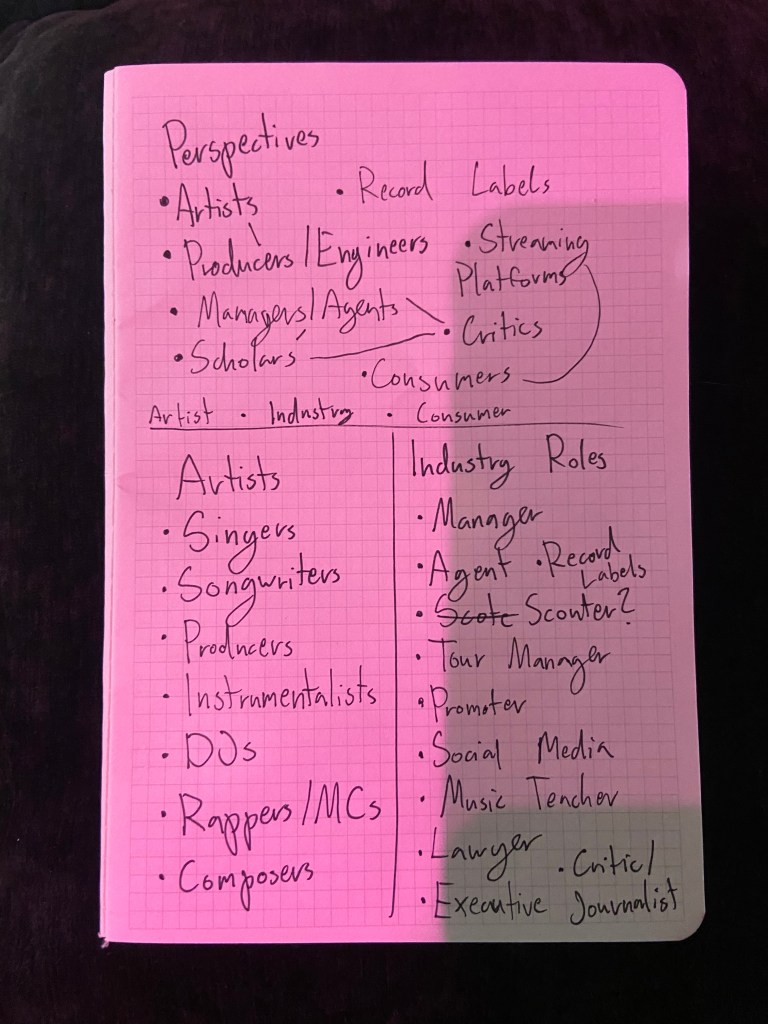 Perspectives
• Artists
• Record Labels
• Producers/Engineers
• Streaming
Platforms
• Managers/Agents
• Critics
• Scholars
• Consumers
Artist • Industry • Consumer
Artists
• Singers
• Songwriters
• Producers
• Instrumentalists
• DJs
• Rappers/MCs
• Composers
Industry Roles
• Manager
• Agent • Record
Labels
• Scouter?
• Tour Manager
• Promoter
• Social Media
• Music Teacher
• Lawyer
• Critic/
• Executive Journalist